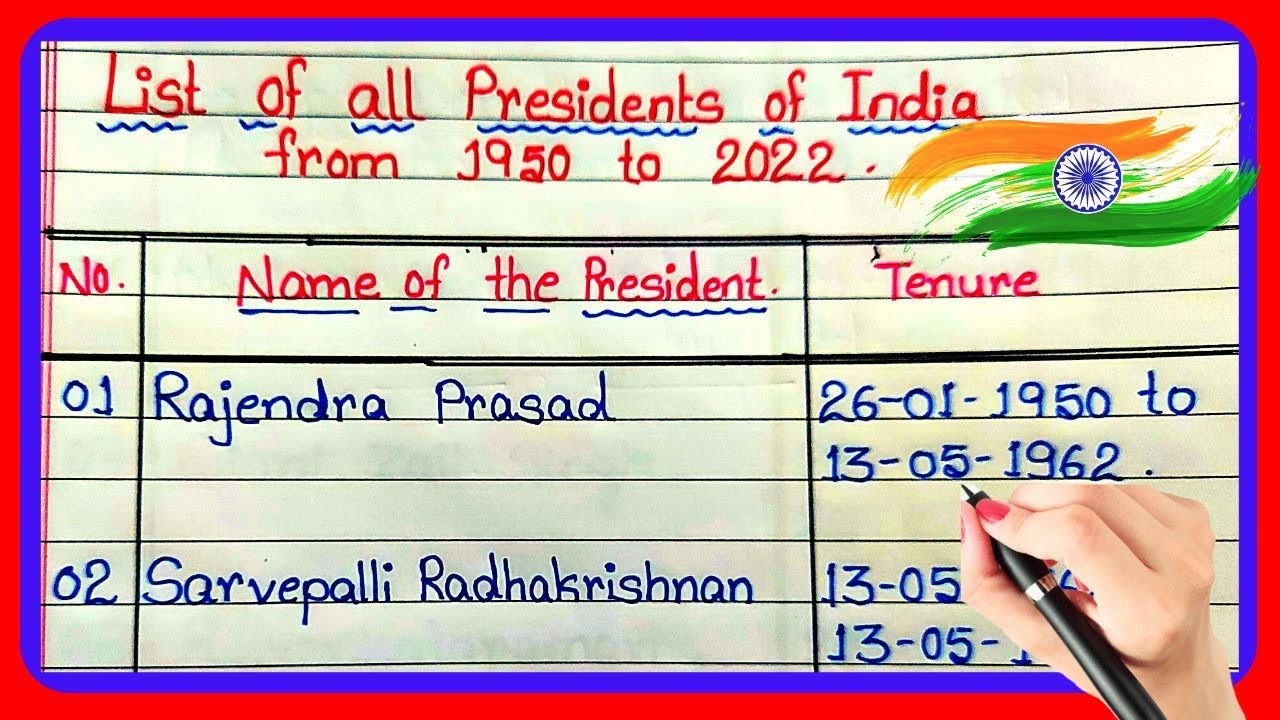 List of all Presidents of India
from 1950 to 2022.
No. Name of the President. Tenure
01 Rajendra Prasad 26-01-1950 to
13-05-1962.
02 Sarvepalli Radhakrishnan 13-05
13-05-